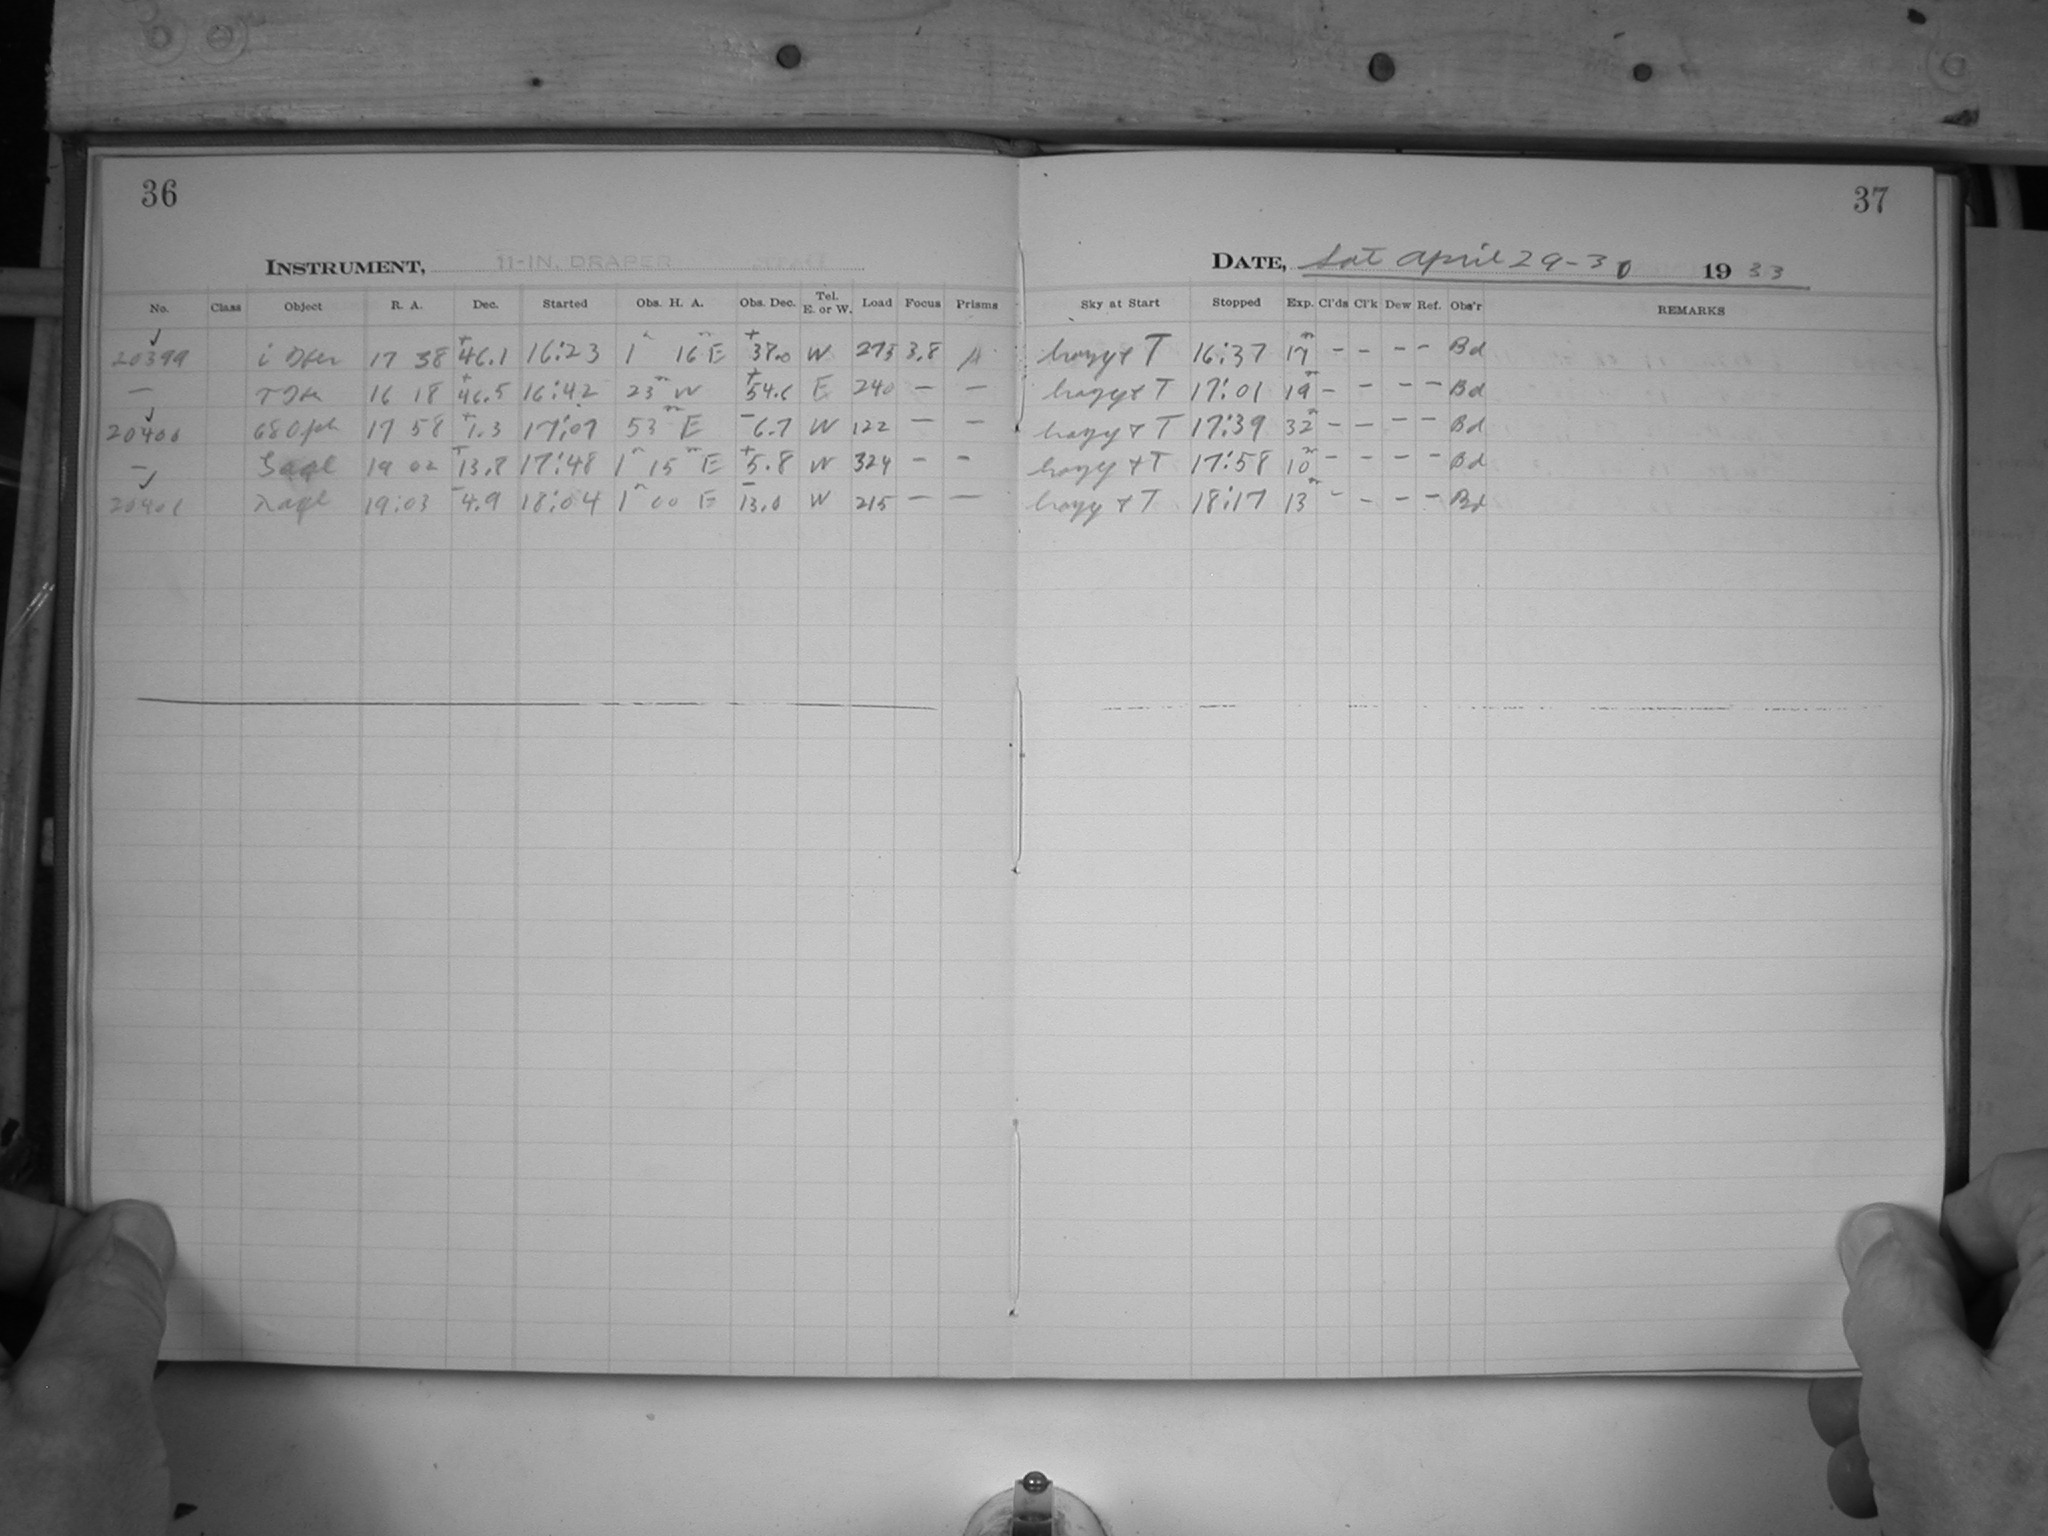 36
INSTRUMENT, 11-IN. DRAPER
No. Class Object R. A. Dec. Started Obs. H. A. Obs. Dec. Tel. E. or W. Load Focus Prisms
20399 i Her 17 38 +46.1 16:23 1h 16m E +38.0 W 275 3.8
— τ Her 16 18 +46.5 16:42 23m W +54.6 E 240 — —
20400 68 Oph 17 58 +1.3 17:07 53m E −6.7 W 122 — —
— ζ aql 19 02 +13.8 17:48 1h 15m E +5.8 W 324 — —
20401 λ aql 19:03 −4.9 18:04 1h 00 E −13.0 W 215 — —
37
DATE, Sat April 29-30 1933
Sky at Start Stopped Exp. Cl'ds Cl'k Dew Ref. Obs'r REMARKS
hazy + T 16:37 17m - - - - Bd
hazy + T 17:01 19m - - - - Bd
hazy + T 17:39 32m - - - - Bd
hazy + T 17:58 10m - - - - Bd
hazy + T 18:17 13m - - - - Bd